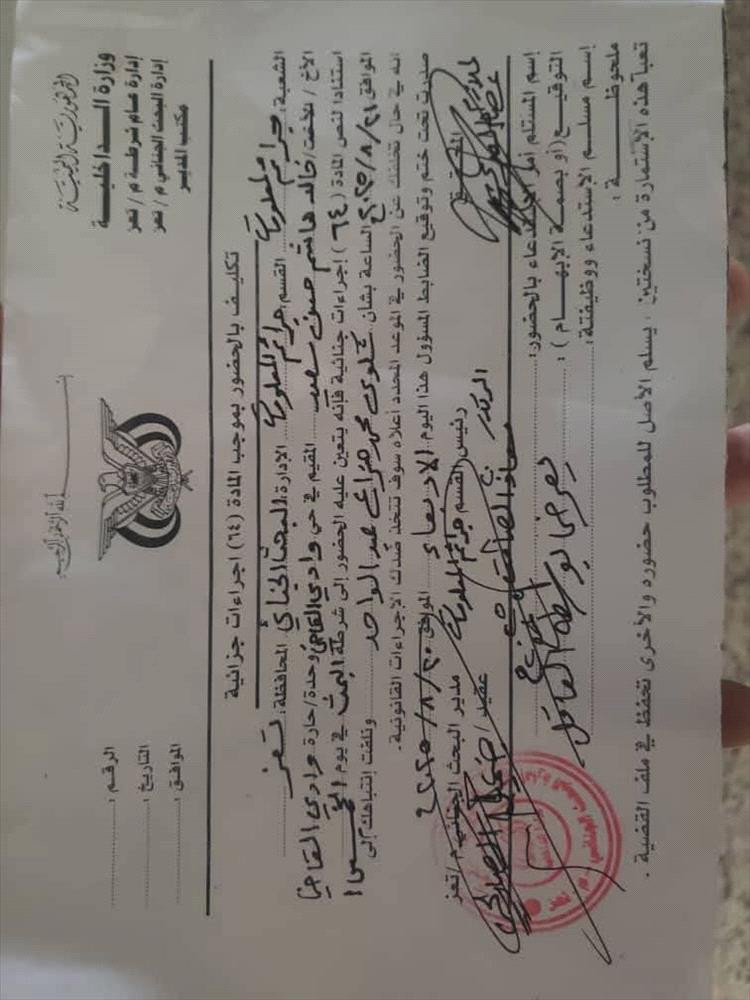 الجمهورية اليمنية
وزارة الداخلية
إدارة عام شرطة م/ تعز
إدارة البحث الجنائي م/ تعز
مكتب المدير
الرقم :
التاريخ :
الموافق :
تكليف بالحضور بموجب المادة (٦٤) اجراءات جزائية
الشعبة: جرائم معلومات القسم: جرائم المعلومات الإدارة: البحث الجنائي المحافظة: تعز
الأخ / الأخت/ خالد هاشم حسن سعيد المقيم في حي وادي القاضي وحدة/ حارة وادي القاضي
استناداً لنص المادة (٦٤) إجراءات جنائية فإنه يتعين عليه الحضور إلى شرطة البحث في يوم الخميس
الموافق ٢٠٢٥/٨/٢١ الساعة بشأن شكوى محمد عبد الواحد ونلفت إنتباهك إلى
انه في حال تخلفك عن الحضور في الموعد المحدد أعلاه سوف تتخذ ضدك الإجراءات القانونية .
صدرت تحت ختم وتوقيع الضابط المسؤول هذا اليوم الاربعاء الموافق ٢٠٢٥/٨/٢٠
المحقق رئيس القسم جرائم المعلومات مدير البحث الجنائي م/ تعز
عقيد/
إسم المستلم أمر الاستدعاء بالحضور:
التوقيع (أو بصمة الإبهام) :
إسم مسلم الإستدعاء ووظيفتة:
ملحوظة :
تعبأ هذه الإستمارة من نسختين ، يسلم الأصل للمطلوب حضوره والأخرى تحفظ في ملف القضية .